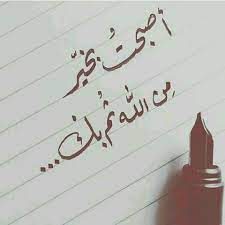 أصبحتُ بخيّر
مِن الله ثم بُك...